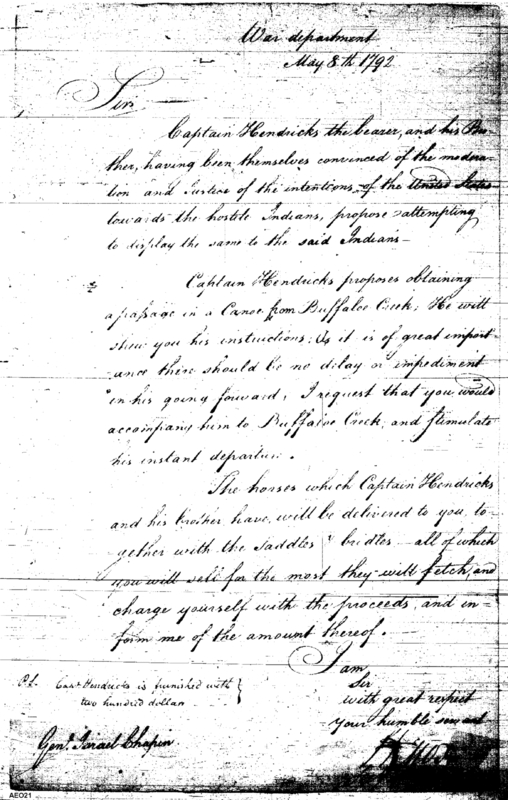 War department
May 8.th 1792
Sir
Captain Hendricks the bearer, and his Bro-
ther, having been themselves convinced of the modera-
tion and Justice of the intentions of the United States
towards the hostile Indians, propose attempting
to display the same to the said Indians—
Captain Hendricks proposes obtaining
a passage in a Canoe from Buffaloe Creek; He will
shew you his instructions; As it is of great import-
ance there should be no delay or impediment
in his going forward, I request that you would
accompany him to Buffaloe Creek, and stimulate
his instant departure.
The horses which Captain Hendricks
and his brother have, will be delivered to you, to-
gether with the saddles & bridles—all of which
you will sell for the most they will fetch, and
charge yourself with the proceeds, and in-
form me of the amount thereof.
I am
Sir
with great respect
Your humble servant
Capt Hendricks is furnished with
two hundred dollars
HKnox
Genl. Israel Chapin
AEO21